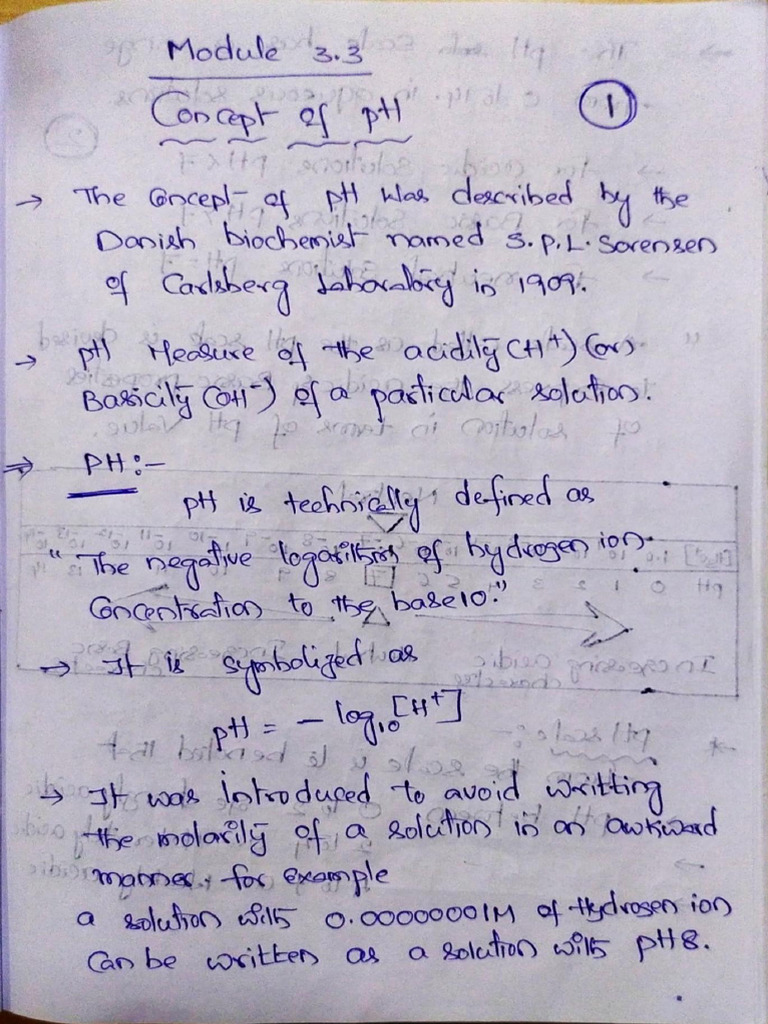 Module 3.3
Concept of pH
1
→ The Concept of pH was described by the
Danish biochemist named S.P.L. Sorensen
of Carlsberg Laboratory in 1909.
→ pH Measure of the acidity (H+) (or)
Basicity (OH-) of a particular solution.
⇒ PH:-
pH is technically defined as
"The negative logarithim of hydrogen ion
Concentration to the base 10."
→ It is symbolized as
pH = - log₁₀ [H+]
→ It was introduced to avoid writting
the molarity of a solution in an awkward
manner, for example
a solution with 0.00000001M of Hydrogen ion
Can be written as a solution with pH 8.